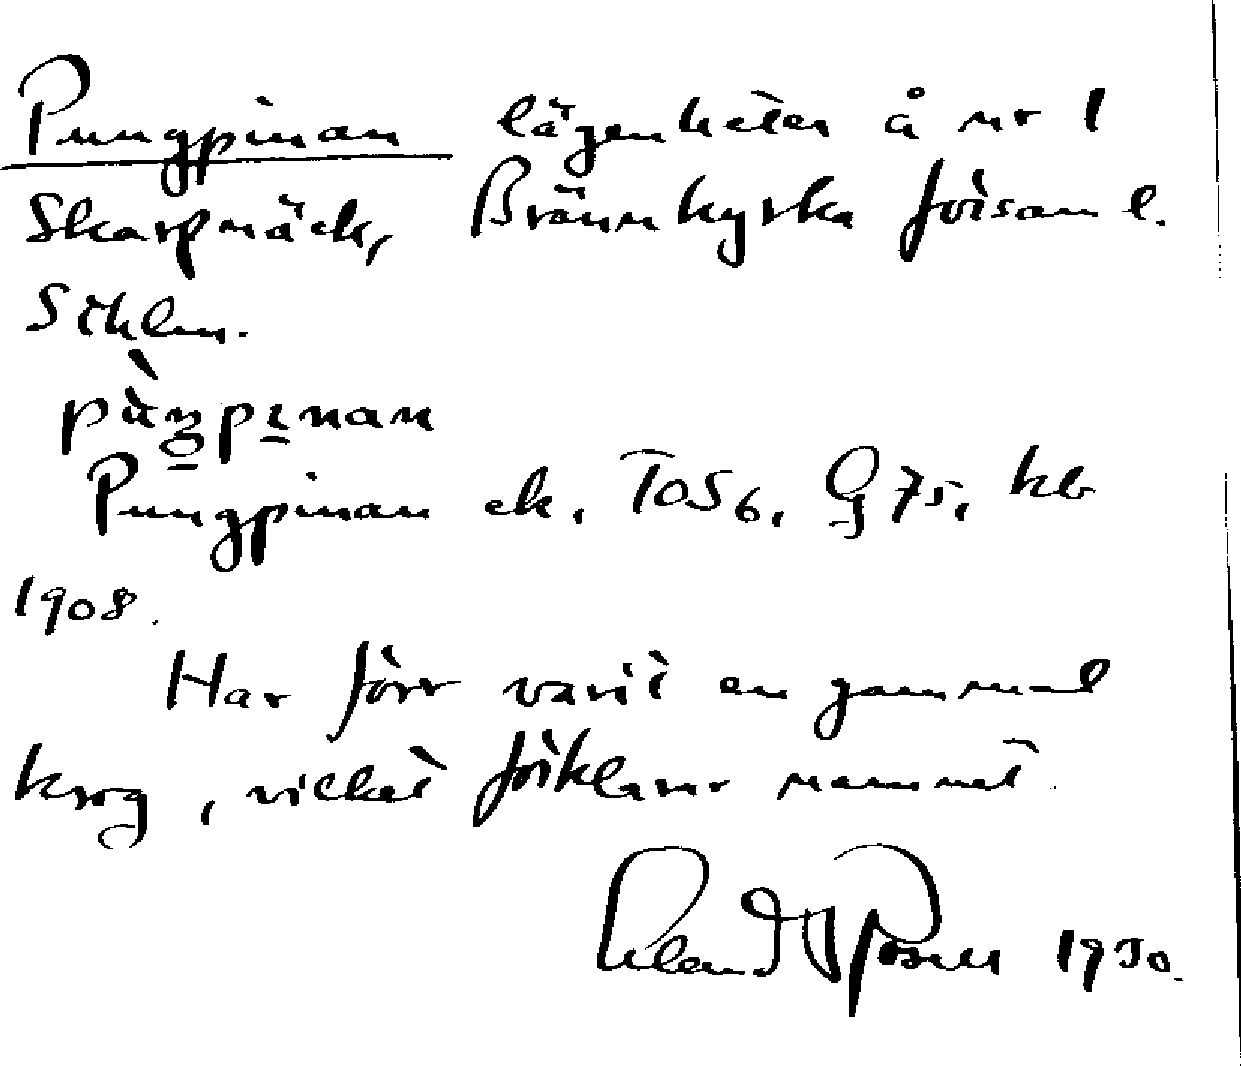 Pungpinan lägenheten å nr 1
Skarpnäck, Brännkyrka församl.
Sthlm.
Pungpinan ek, TOS6, G75, kb
1908.
Har förr varit en gammal
krog, vilket förklarar namnet.
1930.